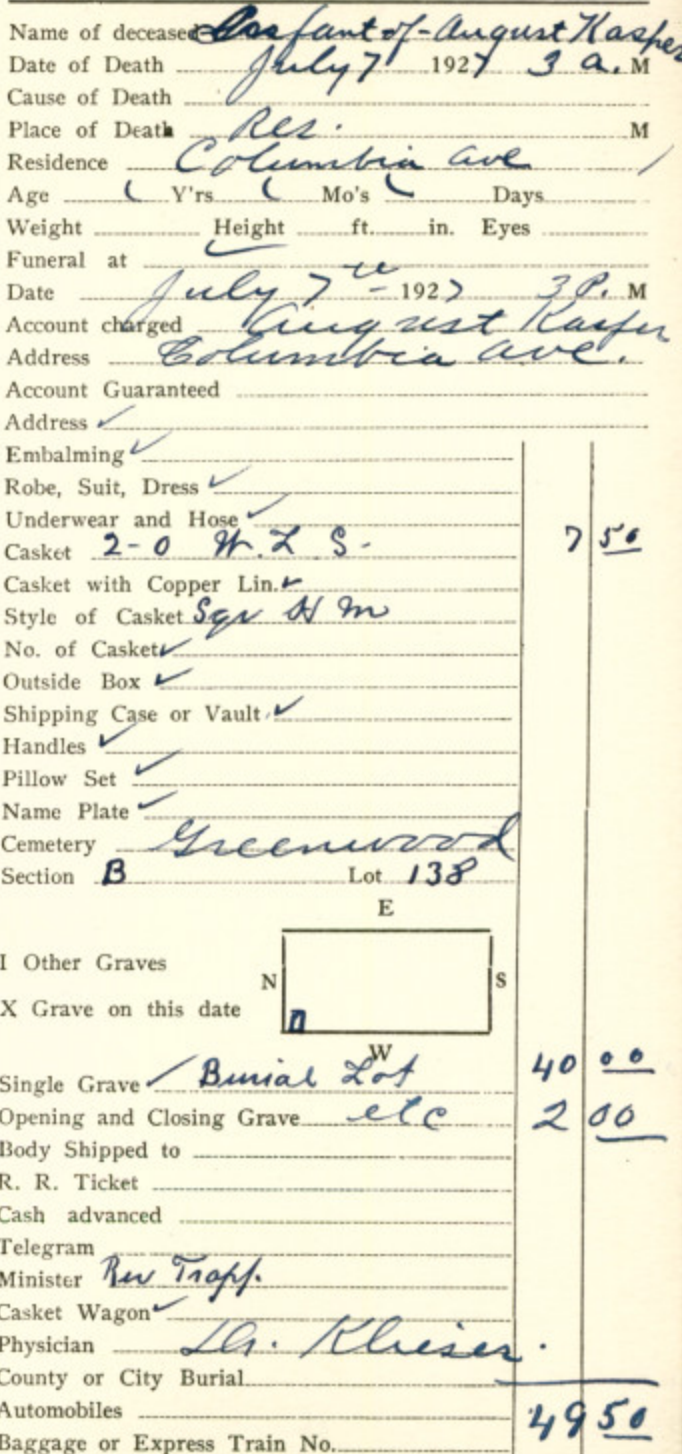 Name of deceased Infant of - August Kasper
Date of Death July 7 1927 3 a. M
Cause of Death
Place of Death Res. M
Residence Columbia ave
Age Y'rs Mo's Days
Weight Height ft. in. Eyes
Funeral at ✓
Date July 7 1927 3 P. M
Account charged August Kasper
Address Columbia ave.
Account Guaranteed
Address ✓
Embalming ✓
Robe, Suit, Dress ✓
Underwear and Hose ✓
Casket 2-0 W. L S- 7 50
Casket with Copper Lin. ✓
Style of Casket Sqr H M
No. of Casket ✓
Outside Box ✓
Shipping Case or Vault ✓
Handles ✓
Pillow Set ✓
Name Plate ✓
Cemetery Greenwood
Section B Lot 138
E
I Other Graves
N S
X Grave on this date
W
Single Grave ✓ Burial Lot 40 00
Opening and Closing Grave etc 2 00
Body Shipped to
R. R. Ticket
Cash advanced
Telegram
Minister Rev Trapp.
Casket Wagon ✓
Physician Dr.
County or City Burial
Automobiles 49 50
Baggage or Express Train No.